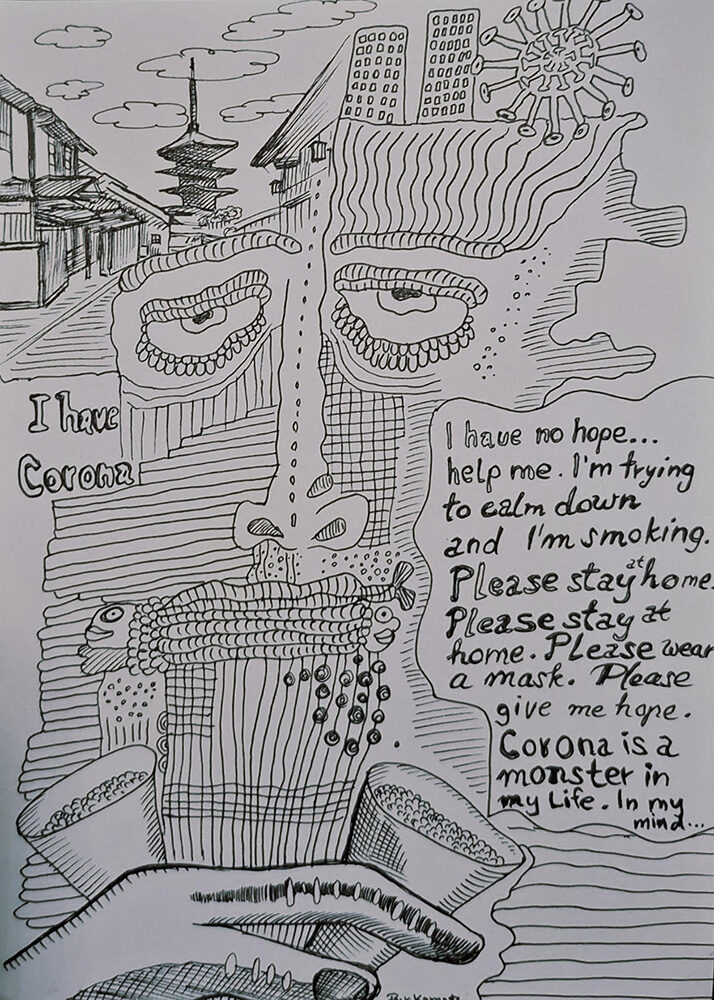 I have
Corona
I have no hope...
help me. I'm trying
to calm down
and I'm smoking.
Please stay at home.
Please stay at
home. Please wear
a mask. Please
give me hope.
Corona is a
monster in
my Life. In my
mind...